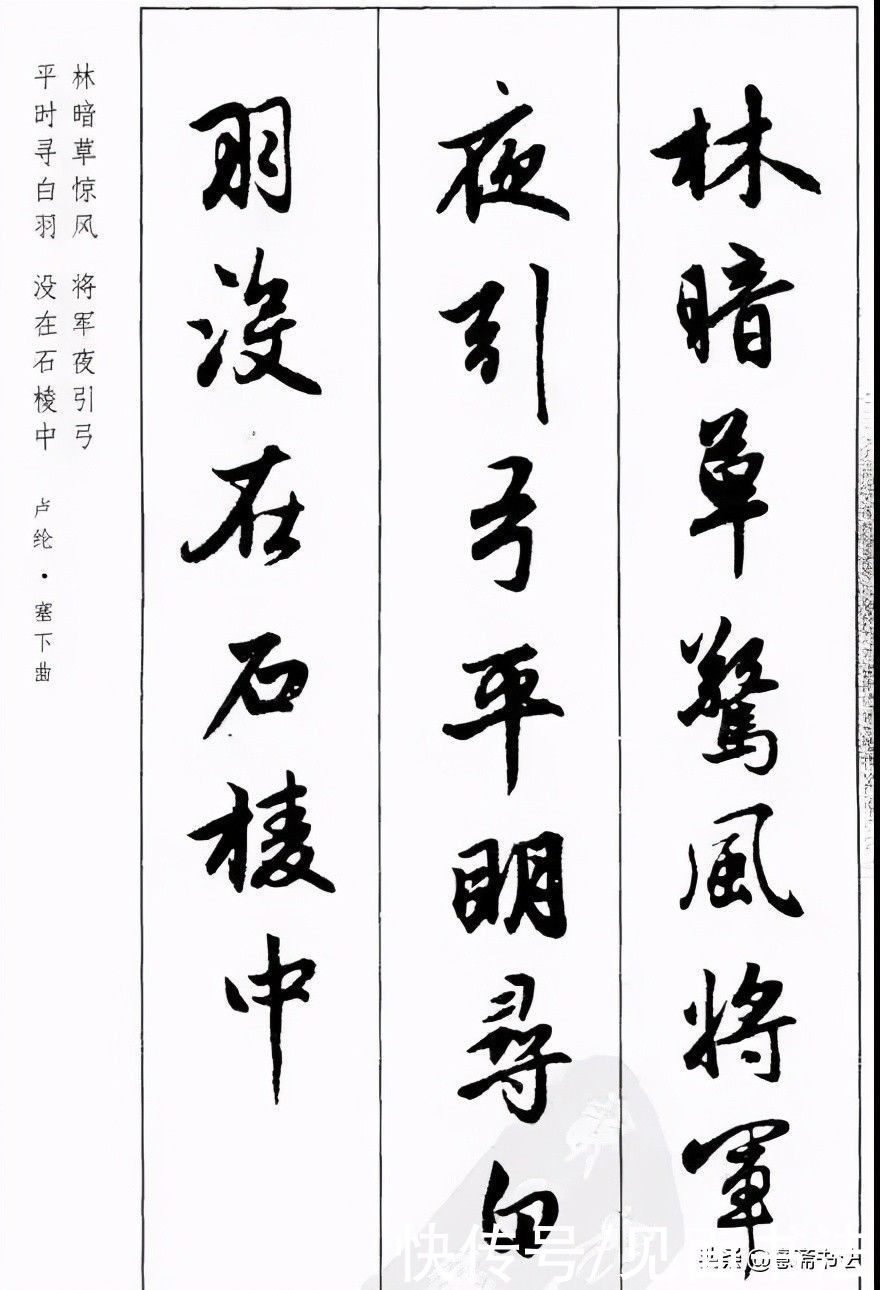 林暗草驚風將軍
夜引弓平明尋白
羽沒在石棱中
林暗草惊风 将军夜引弓
平时寻白羽 没在石棱中 卢纶·塞下曲
快传号/见
头条@